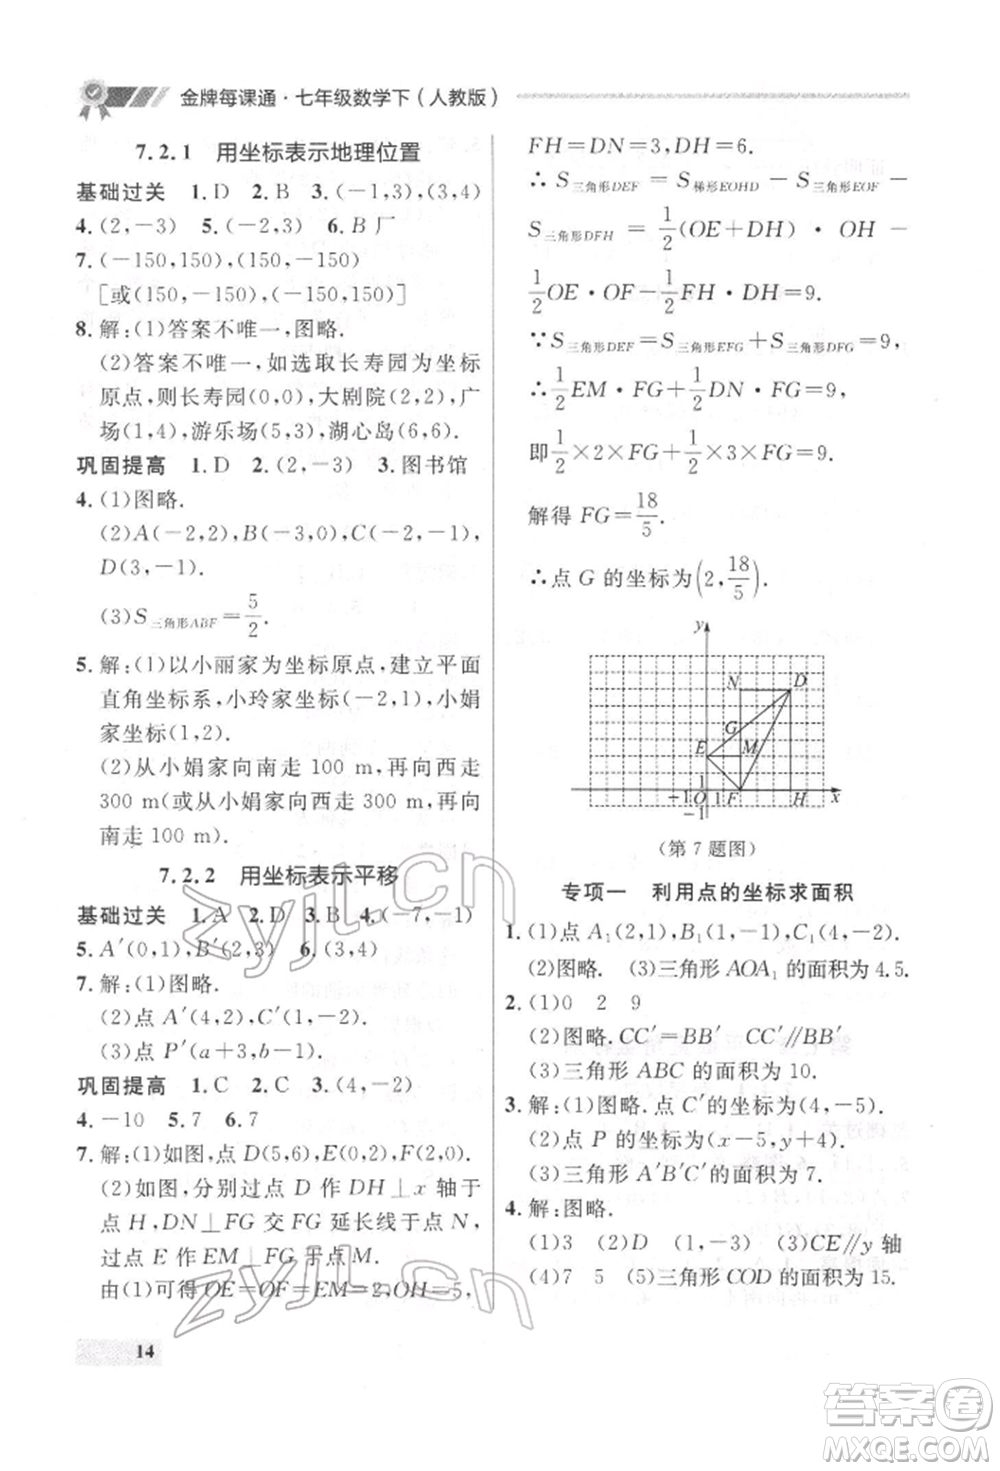 金牌每课通·七年级数学下（人教版）
7.2.1 用坐标表示地理位置
基础过关 1.D 2.B 3.(-1,3),(3,4)
4.(2,-3) 5.(-2,-3) 6.B厂
7.(-150,150),(150,-150)
[或(150,-150),(-150,150)]
8.解:(1)答案不唯一,图略.
(2)答案不唯一,如选取长寿园为坐标
原点,则长寿园(0,0),大剧院(2,1),广
场(1,4),游乐场(5,3),湖心岛(6,6).
巩固提高 1.D 2.(2,-3) 3.图书馆
4.(1)图略.
(2)A(-2,2),B(-3,0),C(-2,-1),
D(3,-1).
(3)S三角形ABF=5/2.
5.解:(1)以小丽家为坐标原点,建立平面
直角坐标系,小玲家坐标(-2,1),小娟
家坐标(1,2).
(2)从小娟家向南走100 m,再向西走
300 m(或从小娟家向西走300 m,再向
南走100 m).
7.2.2 用坐标表示平移
基础过关 1.A 2.D 3.B 4.(-7,-1)
5.A′(0,1),B′(2,3) 6.(3,4)
7.解:(1)图略.
(2)点A′(4,2),点C′(1,-2).
(3)点P′(a+3,b-1).
巩固提高 1.C 2.C 3.(4,-2)
4.-10 5.7 6.7
7.解:(1)如图,点D(5,6),E(0,2),F(2,0).
(2)如图,分别过点D作DH⊥x轴于
点H,DN⊥FG交FG延长线于点N,
过点E作EM⊥FG于点M.
由(1)可得OE=OF=EM=2,OH=5,
14
FH=DN=3,DH=6.
∴S三角形DEF=S梯形EOHD-S三角形EOF-
S三角形DFH=1/2(OE+DH)·OH-
1/2OE·OF-1/2FH·DH=9.
∵S三角形DEF=S三角形EFG+S三角形DFG=9,
∴1/2EM·FG+1/2DN·FG=9,
即1/2×2×FG+1/2×3×FG=9.
解得FG=18/5.
∴点G的坐标为(2,18/5).
y
N D
G
E M
1
-1 O 1 F H x
-1
(第7题图)
专项一 利用点的坐标求面积
1.(1)点A₁(2,1),B₁(1,-1),C₁(4,-2).
(2)图略. (3)三角形AOA₁的面积为4.5.
2.(1)0 2 9
(2)图略. CC′=BB′ CC′//BB′
(3)三角形ABC的面积为10.
3.解:(1)图略.点C′的坐标为(4,-5).
(2)点P的坐标为(x-5,y+4).
(3)三角形A′B′C′的面积为7.
4.解:图略.
(1)3 (2)D (1,-3) (3)CE//y轴
(4)7 5 (5)三角形COD的面积为15.
zyjl.cn
zyjl.cn
答案圈
MXQE.COM